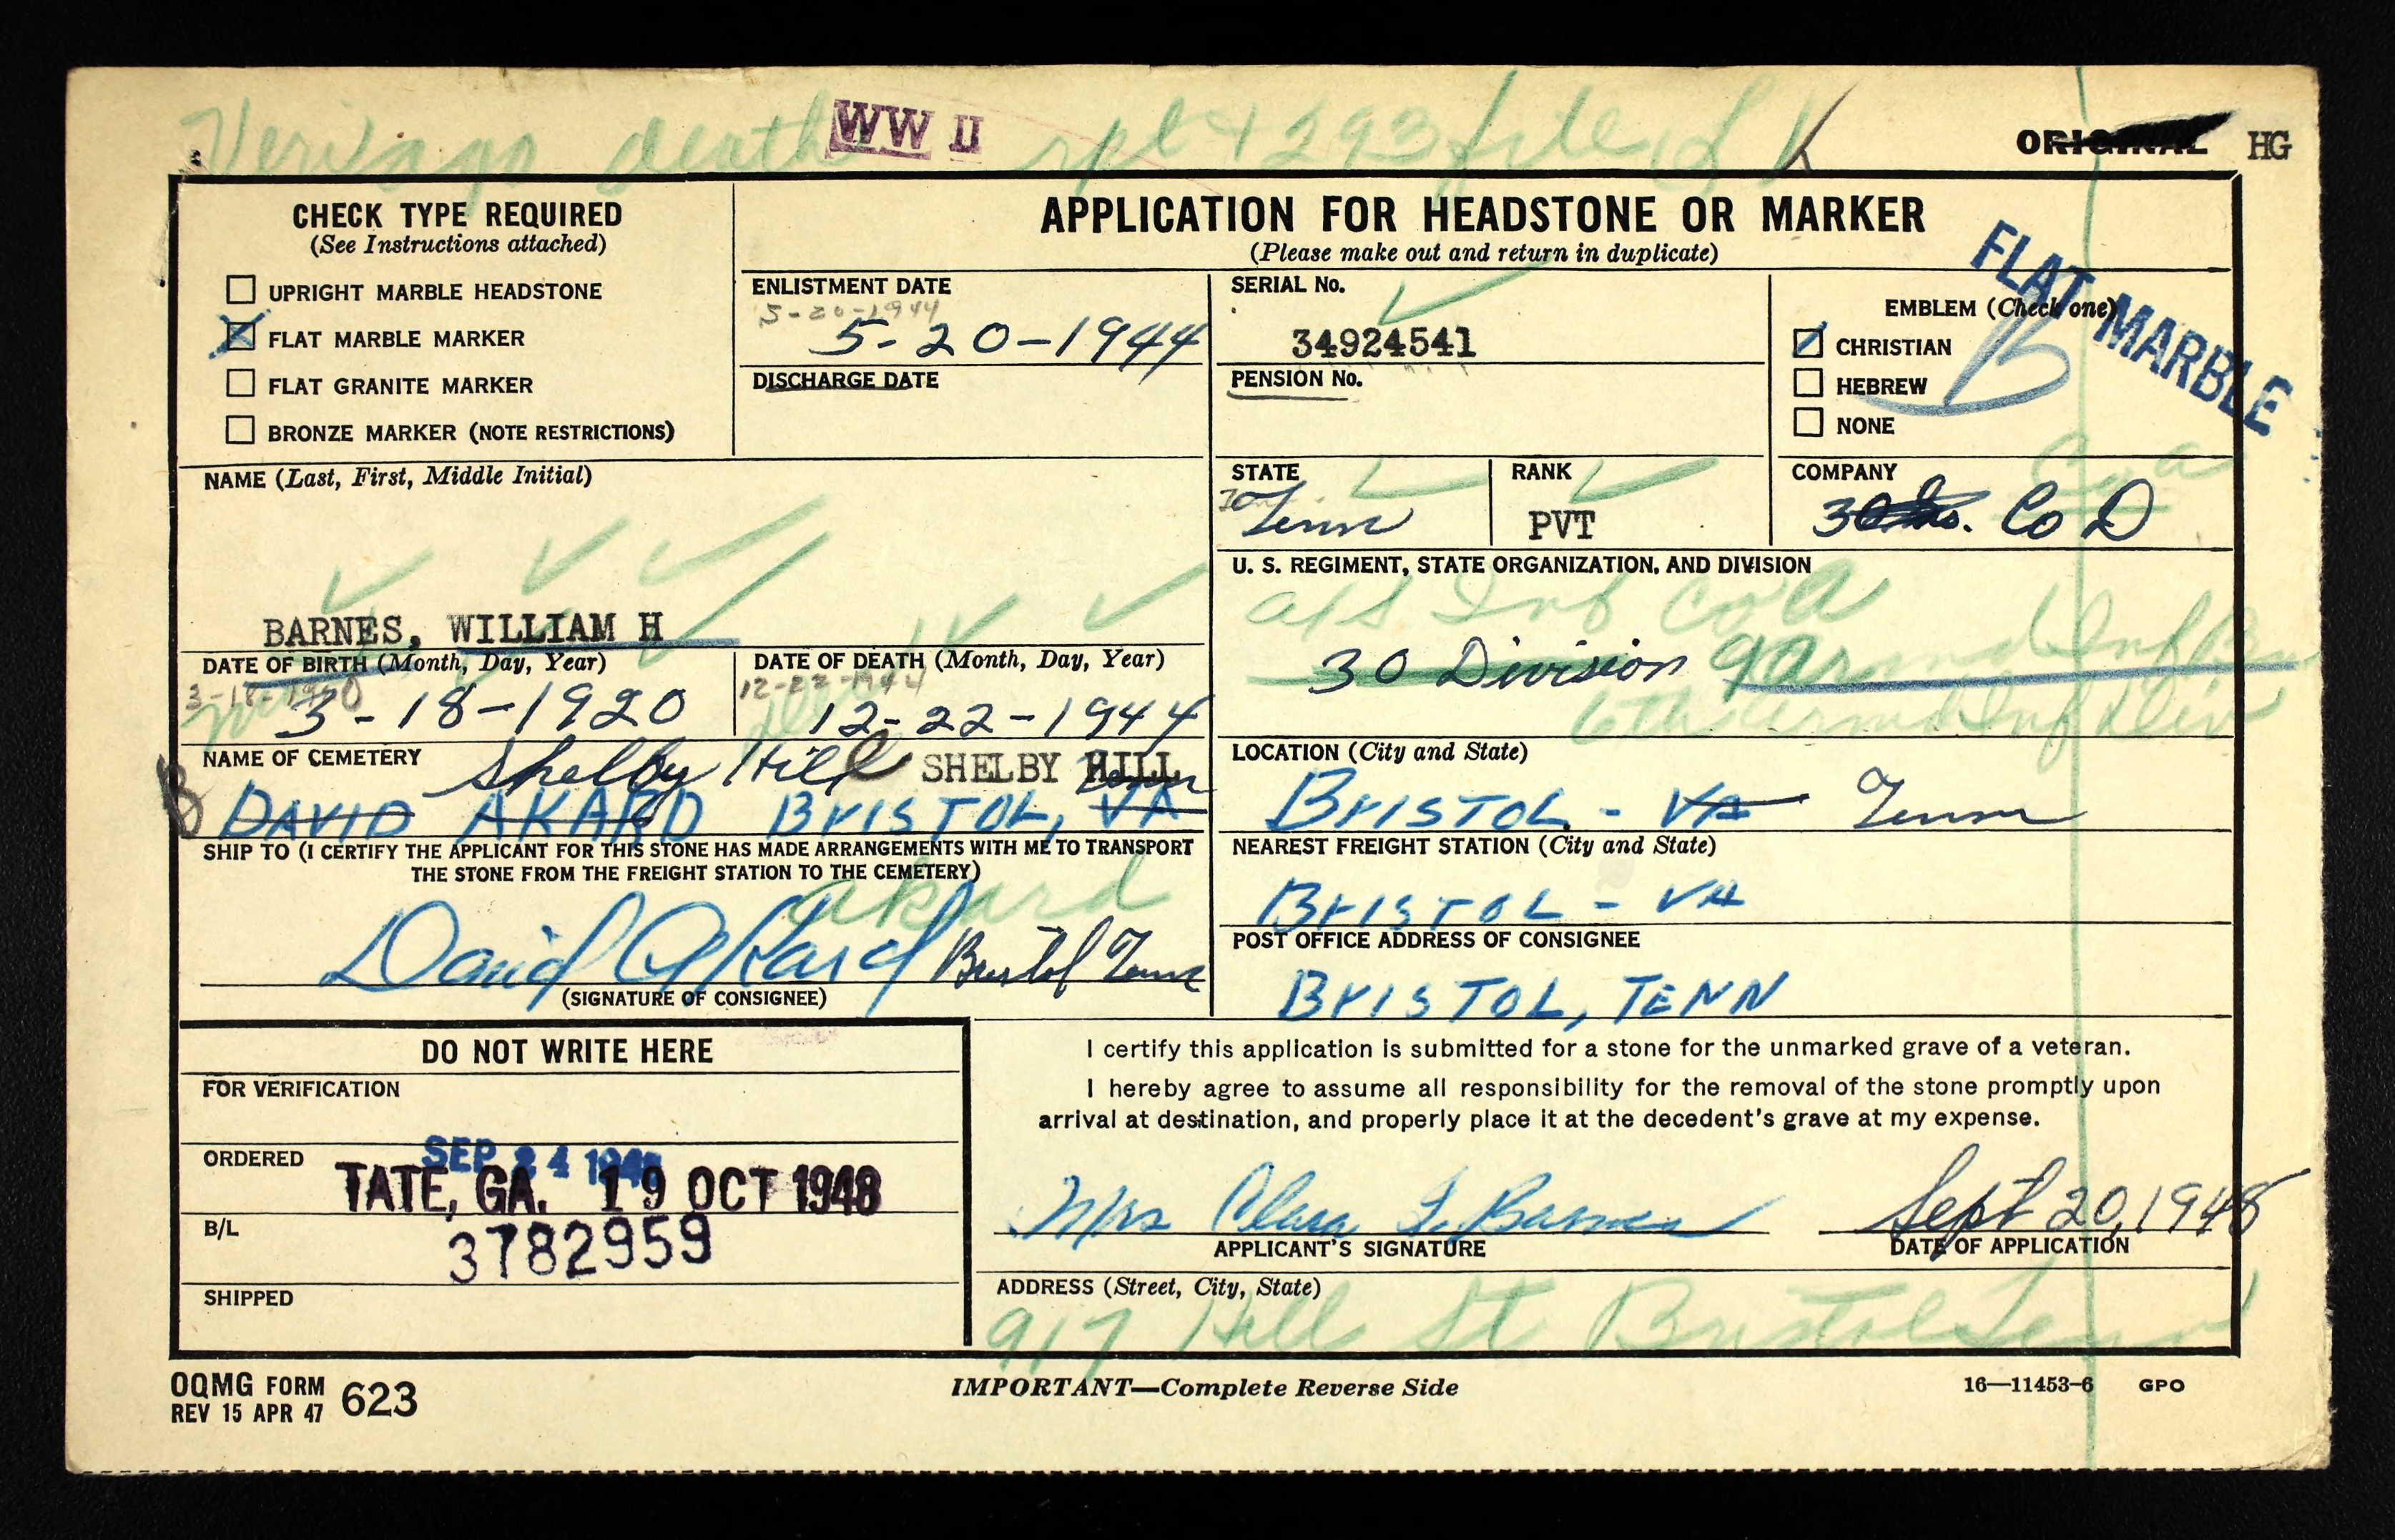 death WW II rpt 4293 file
ORIGINAL HG
CHECK TYPE REQUIRED
(See Instructions attached)
UPRIGHT MARBLE HEADSTONE
FLAT MARBLE MARKER
FLAT GRANITE MARKER
BRONZE MARKER (NOTE RESTRICTIONS)
APPLICATION FOR HEADSTONE OR MARKER
(Please make out and return in duplicate)
ENLISTMENT DATE
5-20-1944
5-20-1944
DISCHARGE DATE
SERIAL No.
34924541
PENSION No.
EMBLEM (Check one)
FLAT MARBLE
CHRISTIAN
HEBREW
NONE
B
NAME (Last, First, Middle Initial)
BARNES, WILLIAM H
STATE
Tenn
RANK
PVT
COMPANY
Co A
Co D
U. S. REGIMENT, STATE ORGANIZATION, AND DIVISION
Inf Co A
30 Division 9 Armd Inf Bn
6th Armd Inf Div
DATE OF BIRTH (Month, Day, Year)
3-18-1920
3-18-1920
DATE OF DEATH (Month, Day, Year)
12-22-1944
12-22-1944
NAME OF CEMETERY
Shelby Hill SHELBY HILL
DAVID AKARD BRISTOL, VA Tenn
LOCATION (City and State)
BRISTOL - VA Tenn
SHIP TO (I CERTIFY THE APPLICANT FOR THIS STONE HAS MADE ARRANGEMENTS WITH ME TO TRANSPORT
THE STONE FROM THE FREIGHT STATION TO THE CEMETERY)
Akard
David Akard Bristol Tenn
(SIGNATURE OF CONSIGNEE)
NEAREST FREIGHT STATION (City and State)
BRISTOL - VA
POST OFFICE ADDRESS OF CONSIGNEE
BRISTOL, TENN
DO NOT WRITE HERE
FOR VERIFICATION
ORDERED
SEP 24 1948
TATE, GA. 19 OCT 1948
B/L
3782959
SHIPPED
I certify this application is submitted for a stone for the unmarked grave of a veteran.
I hereby agree to assume all responsibility for the removal of the stone promptly upon
arrival at destination, and properly place it at the decedent's grave at my expense.
Mrs Clara F. Barnes
APPLICANT'S SIGNATURE
Sept 20, 1948
DATE OF APPLICATION
ADDRESS (Street, City, State)
917 Hill St Bristol Tenn
OQMG FORM 623
REV 15 APR 47
IMPORTANT—Complete Reverse Side
16—11453-6 GPO